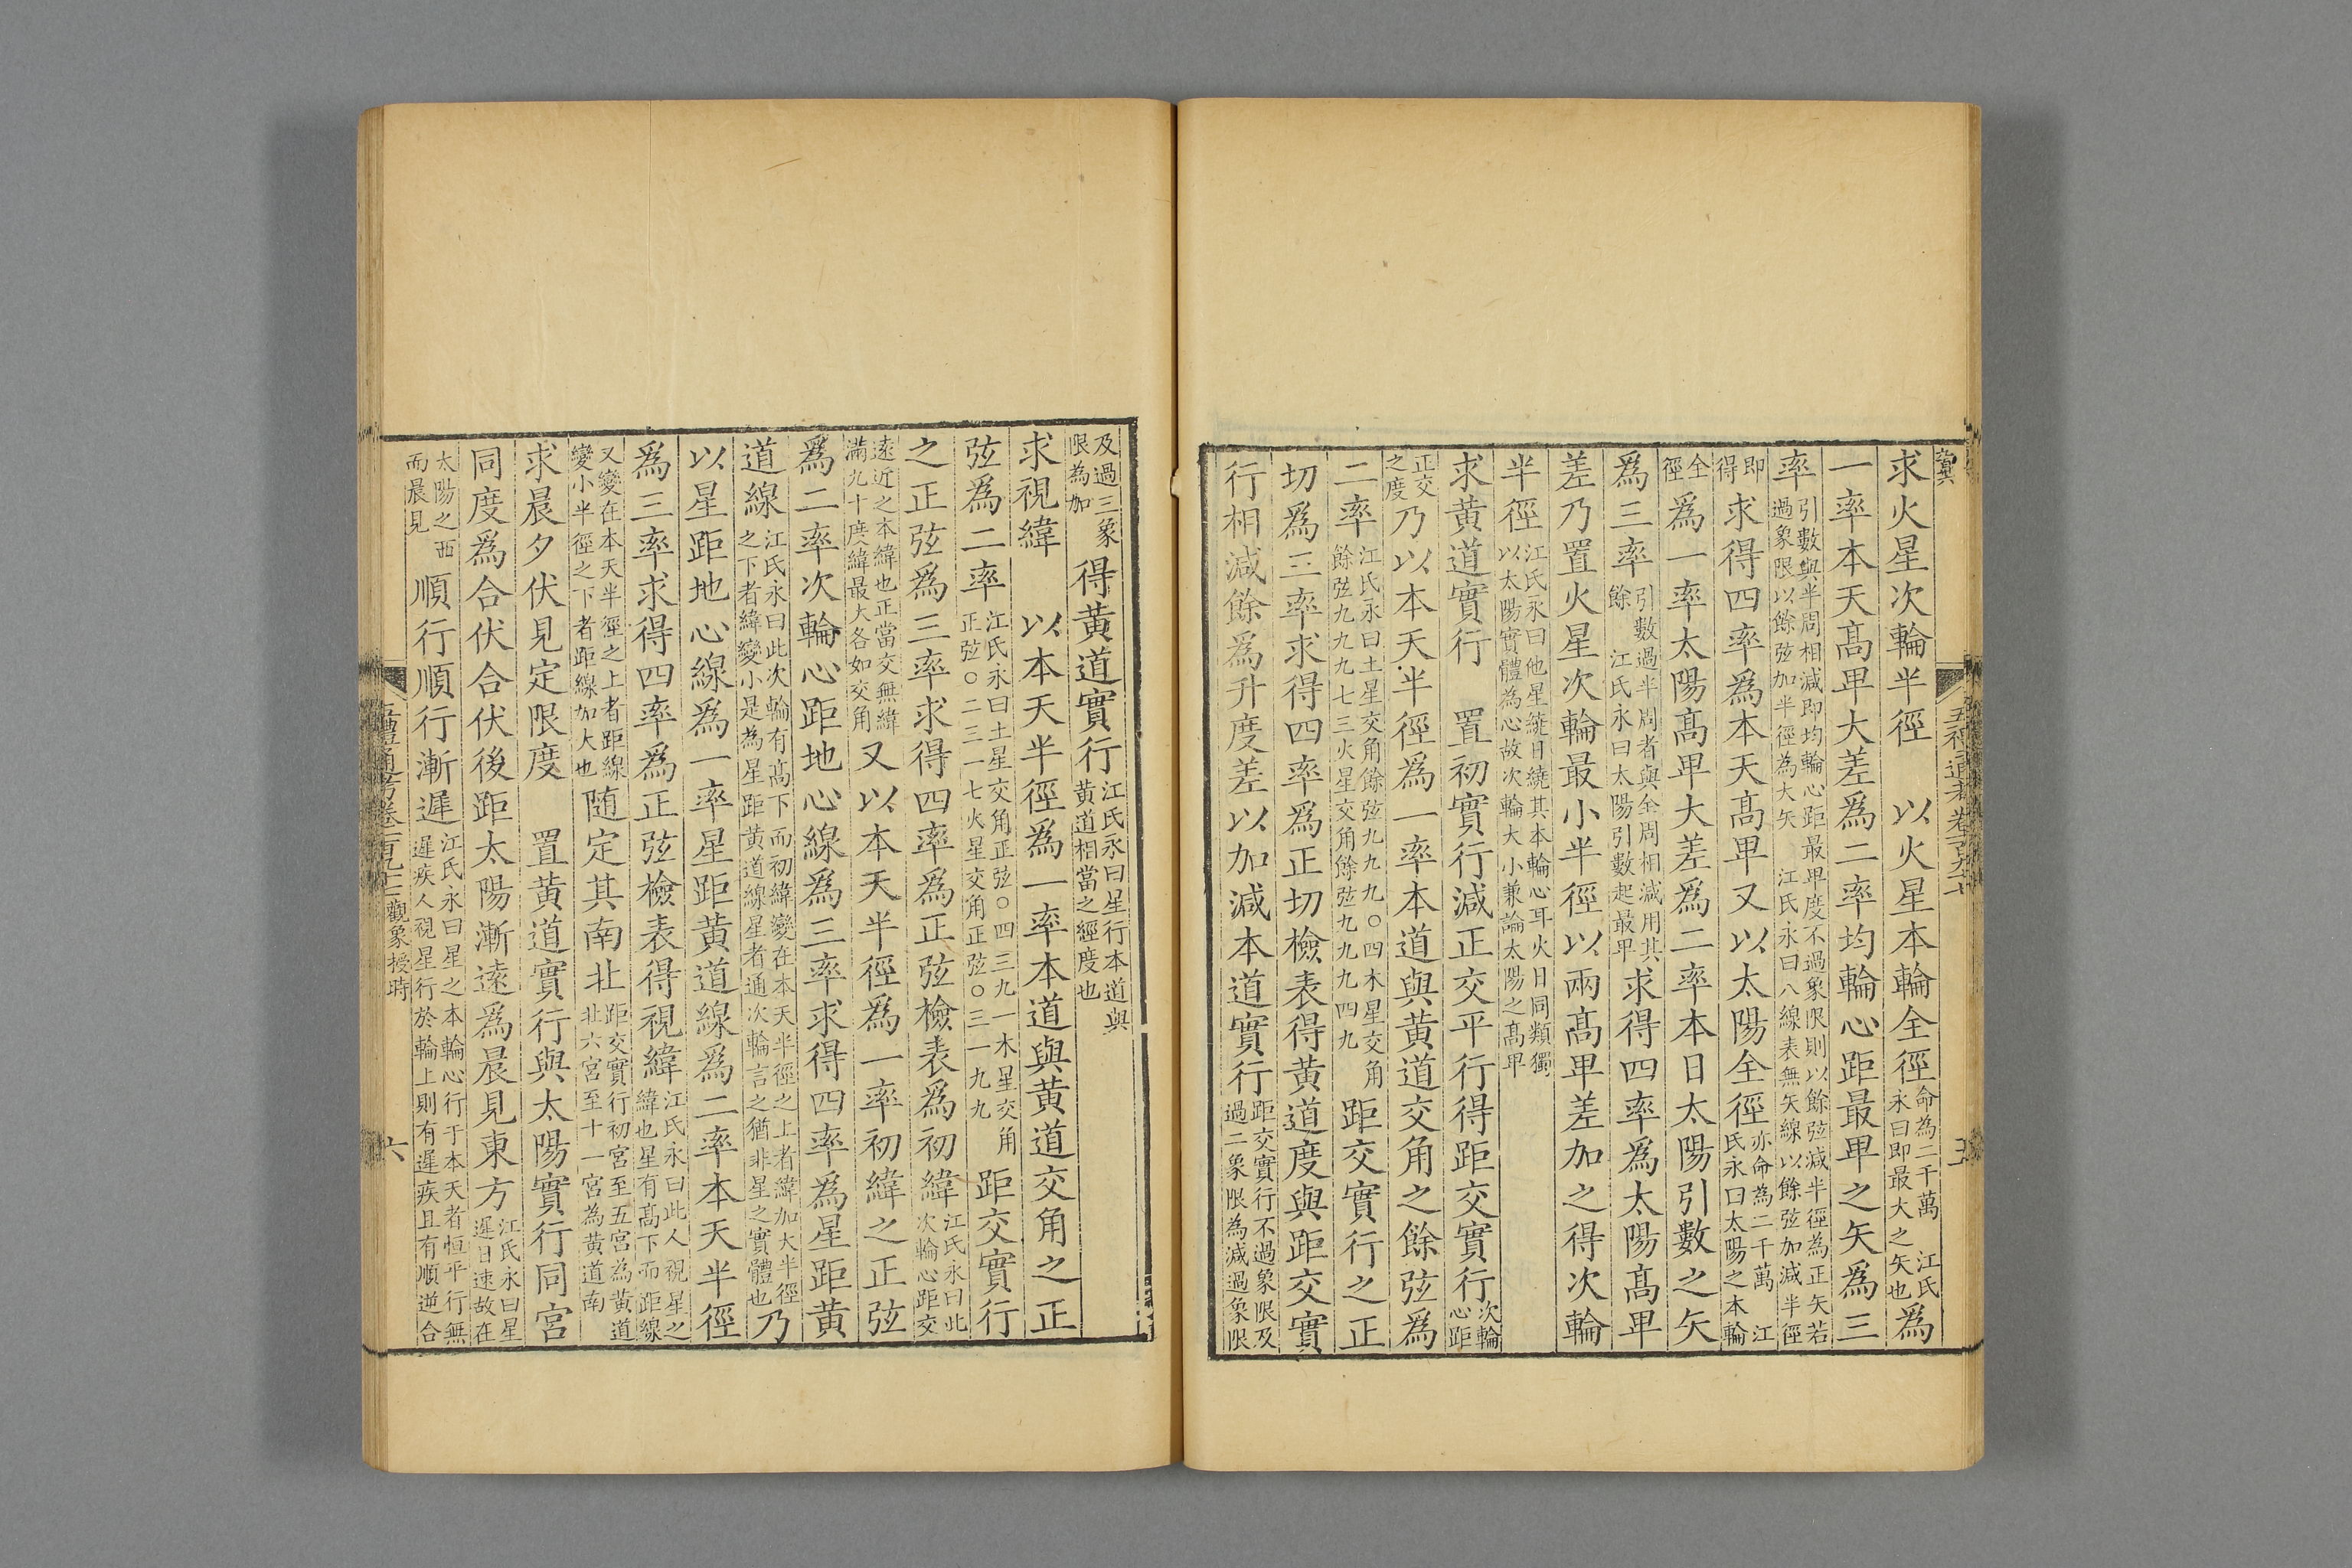 求火星次輪半徑　以火星本輪全徑命為二千萬　江氏永曰即最大之矢也為
一率本天高卑大差為二率均輪心距最卑之矢為三
率引數與半周相減即均輪心距最卑度不過象限則以餘弦減半徑為正矢若過象限以餘弦加半徑為大矢　江氏永曰八線表無矢線以餘弦加減半徑
即得求得四率為本天高卑又以太陽全徑亦命為二千萬　江氏永曰太陽之本輪
全徑為一率太陽高卑大差為二率本日太陽引數之矢
為三率引數過半周者與全周相減用其餘　江氏永曰太陽引數起最卑求得四率為太陽高卑
差乃置火星次輪最小半徑以兩高卑差加之得次輪
半徑江氏永曰他星繞日繞其本輪心耳火日同類獨以太陽實體為心故次輪大小兼論太陽之高卑
求黃道實行　置初實行減正交平行得距交實行次輪心距
正交之度乃以本天半徑為一率本道與黃道交角之餘弦為
二率江氏永曰土星交角餘弦九九九〇四木星交角餘弦九九九七三火星交角餘弦九九九四九距交實行之正
切爲三率求得四率爲正切檢表得黃道度與距交實
行相減餘爲升度差以加減本道實行距交實行不過象限及過二象限為減過象限
及過三象限為加得黃道實行江氏永曰星行本道與黃道相當之經度也
求視緯　以本天半徑爲一率本道與黃道交角之正
弦爲二率江氏永曰土星交角正弦〇四三九一木星交角正弦〇二三一七火星交角正弦〇三一九九距交實行
之正弦爲三率求得四率爲正弦檢表爲初緯江氏永曰此次輪心距交
遠近之本緯也正當交無緯滿九十度緯最大各如交角又以本天半徑爲一率初緯之正弦
爲二率次輪心距地心線爲三率求得四率爲星距黃
道線江氏永曰此次輪有高下而初緯變在本天半徑之上者緯加大半徑之下者緯變小是為星距黃道線星者通次輪言之猶非星之實體也乃
以星距地心線爲一率星距黃道線爲二率本天半徑
爲三率求得四率爲正弦檢表得視緯江氏永曰此人視星之緯也星有高下而距線
又變在本天半徑之上者距線變小半徑之下者距線加大也随定其南北距交實行初宮至五宮為黃道北六宮至十一宮為黃道南
求晨夕伏見定限度　置黃道實行與太陽實行同宮
同度爲合伏合伏後距太陽漸遠爲晨見東方江氏永曰星遲日速故在
太陽之西而晨見順行順行漸遲江氏永曰星之本輪心行于本天者恒平行無遲疾人視星行於輪上則有遲疾且有順逆合
五禮通考卷一百九十二觀象授時
六